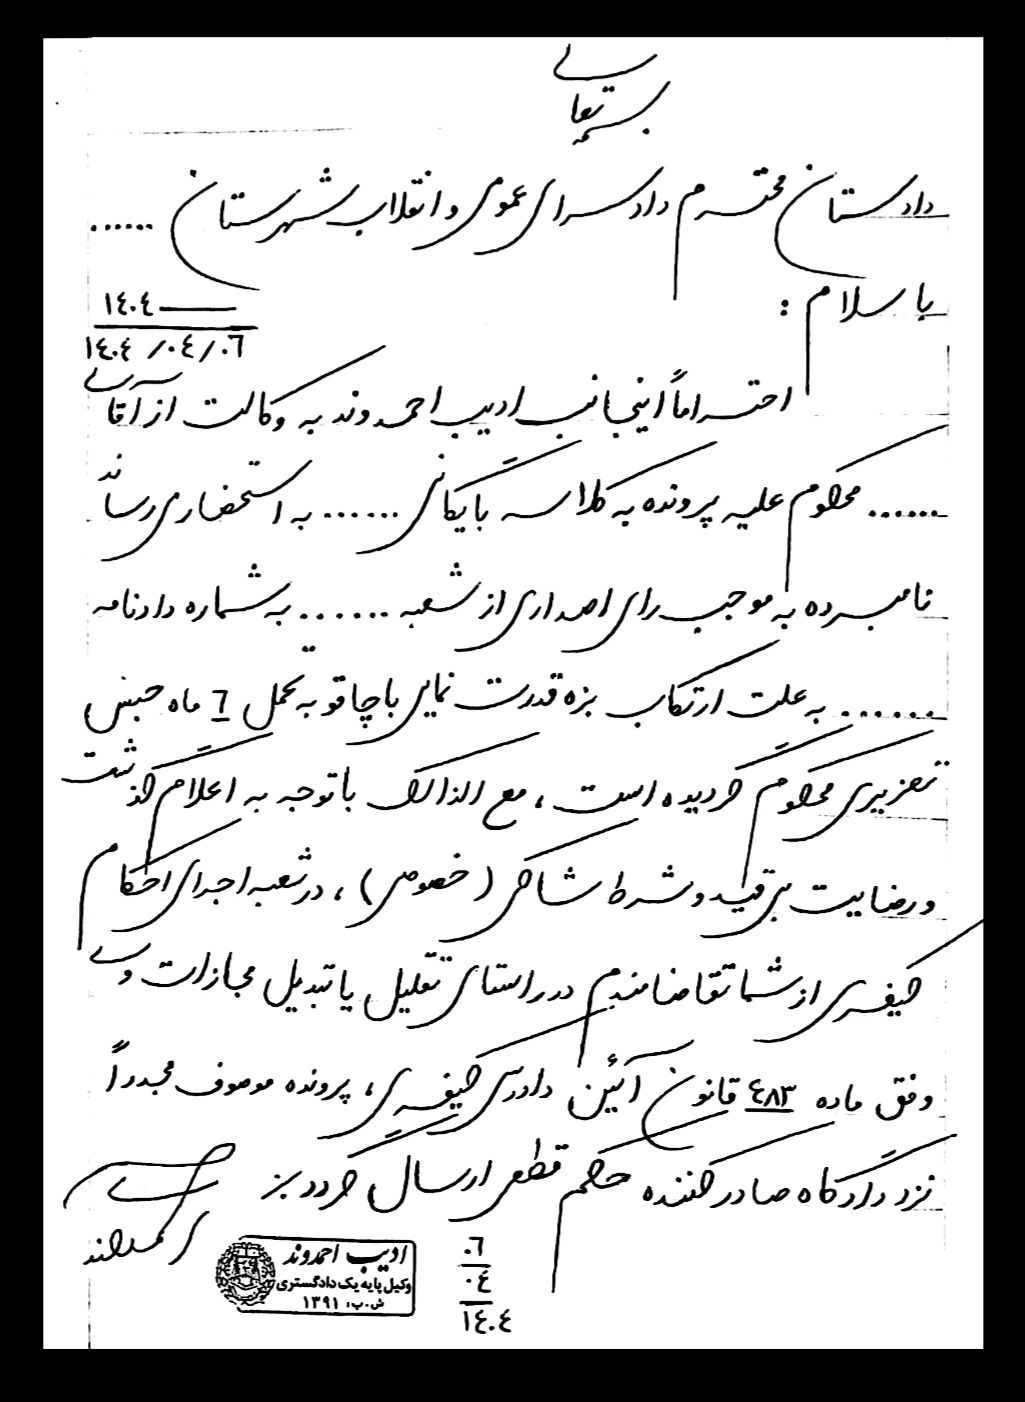 بسمه تعالی
دادستان محترم دادسرای عمومی و انقلاب شهرستان ......
با سلام :
١٤٠٤ ——
١٤٠٤ /٠٤/٠٦
احتراماً اینجانب ادیب احمدوند به وکالت از آقای
...... محکوم علیه پرونده به کلاسه بایگانی ...... به استحضار می رساند
نامبرده به موجب رای اصداری از شعبه ...... به شماره دادنامه
...... به علت ارتکاب بزه قدرت نمایی با چاقو به تحمل ٦ ماه حبس
تعزیری محکوم گردیده است ، مع الذالک با توجه به اعلام گذشت
و رضایت بی قید و شرط شاکی (خصوصی) ، در شعبه اجرای احکام
کیفری از شما تقاضامندم در راستای تقلیل یا تبدیل مجازات وی
وفق ماده ٤٨٣ قانون آئین دادرسی کیفری ، پرونده موصوف مجدداً
نزد دادگاه صادر کننده حکم قطعی ارسال گردد
ادیب احمدوند
وکیل پایه یک دادگستری
ش.پ: ١٣٩١
٠٦
٠٤
١٤٠٤